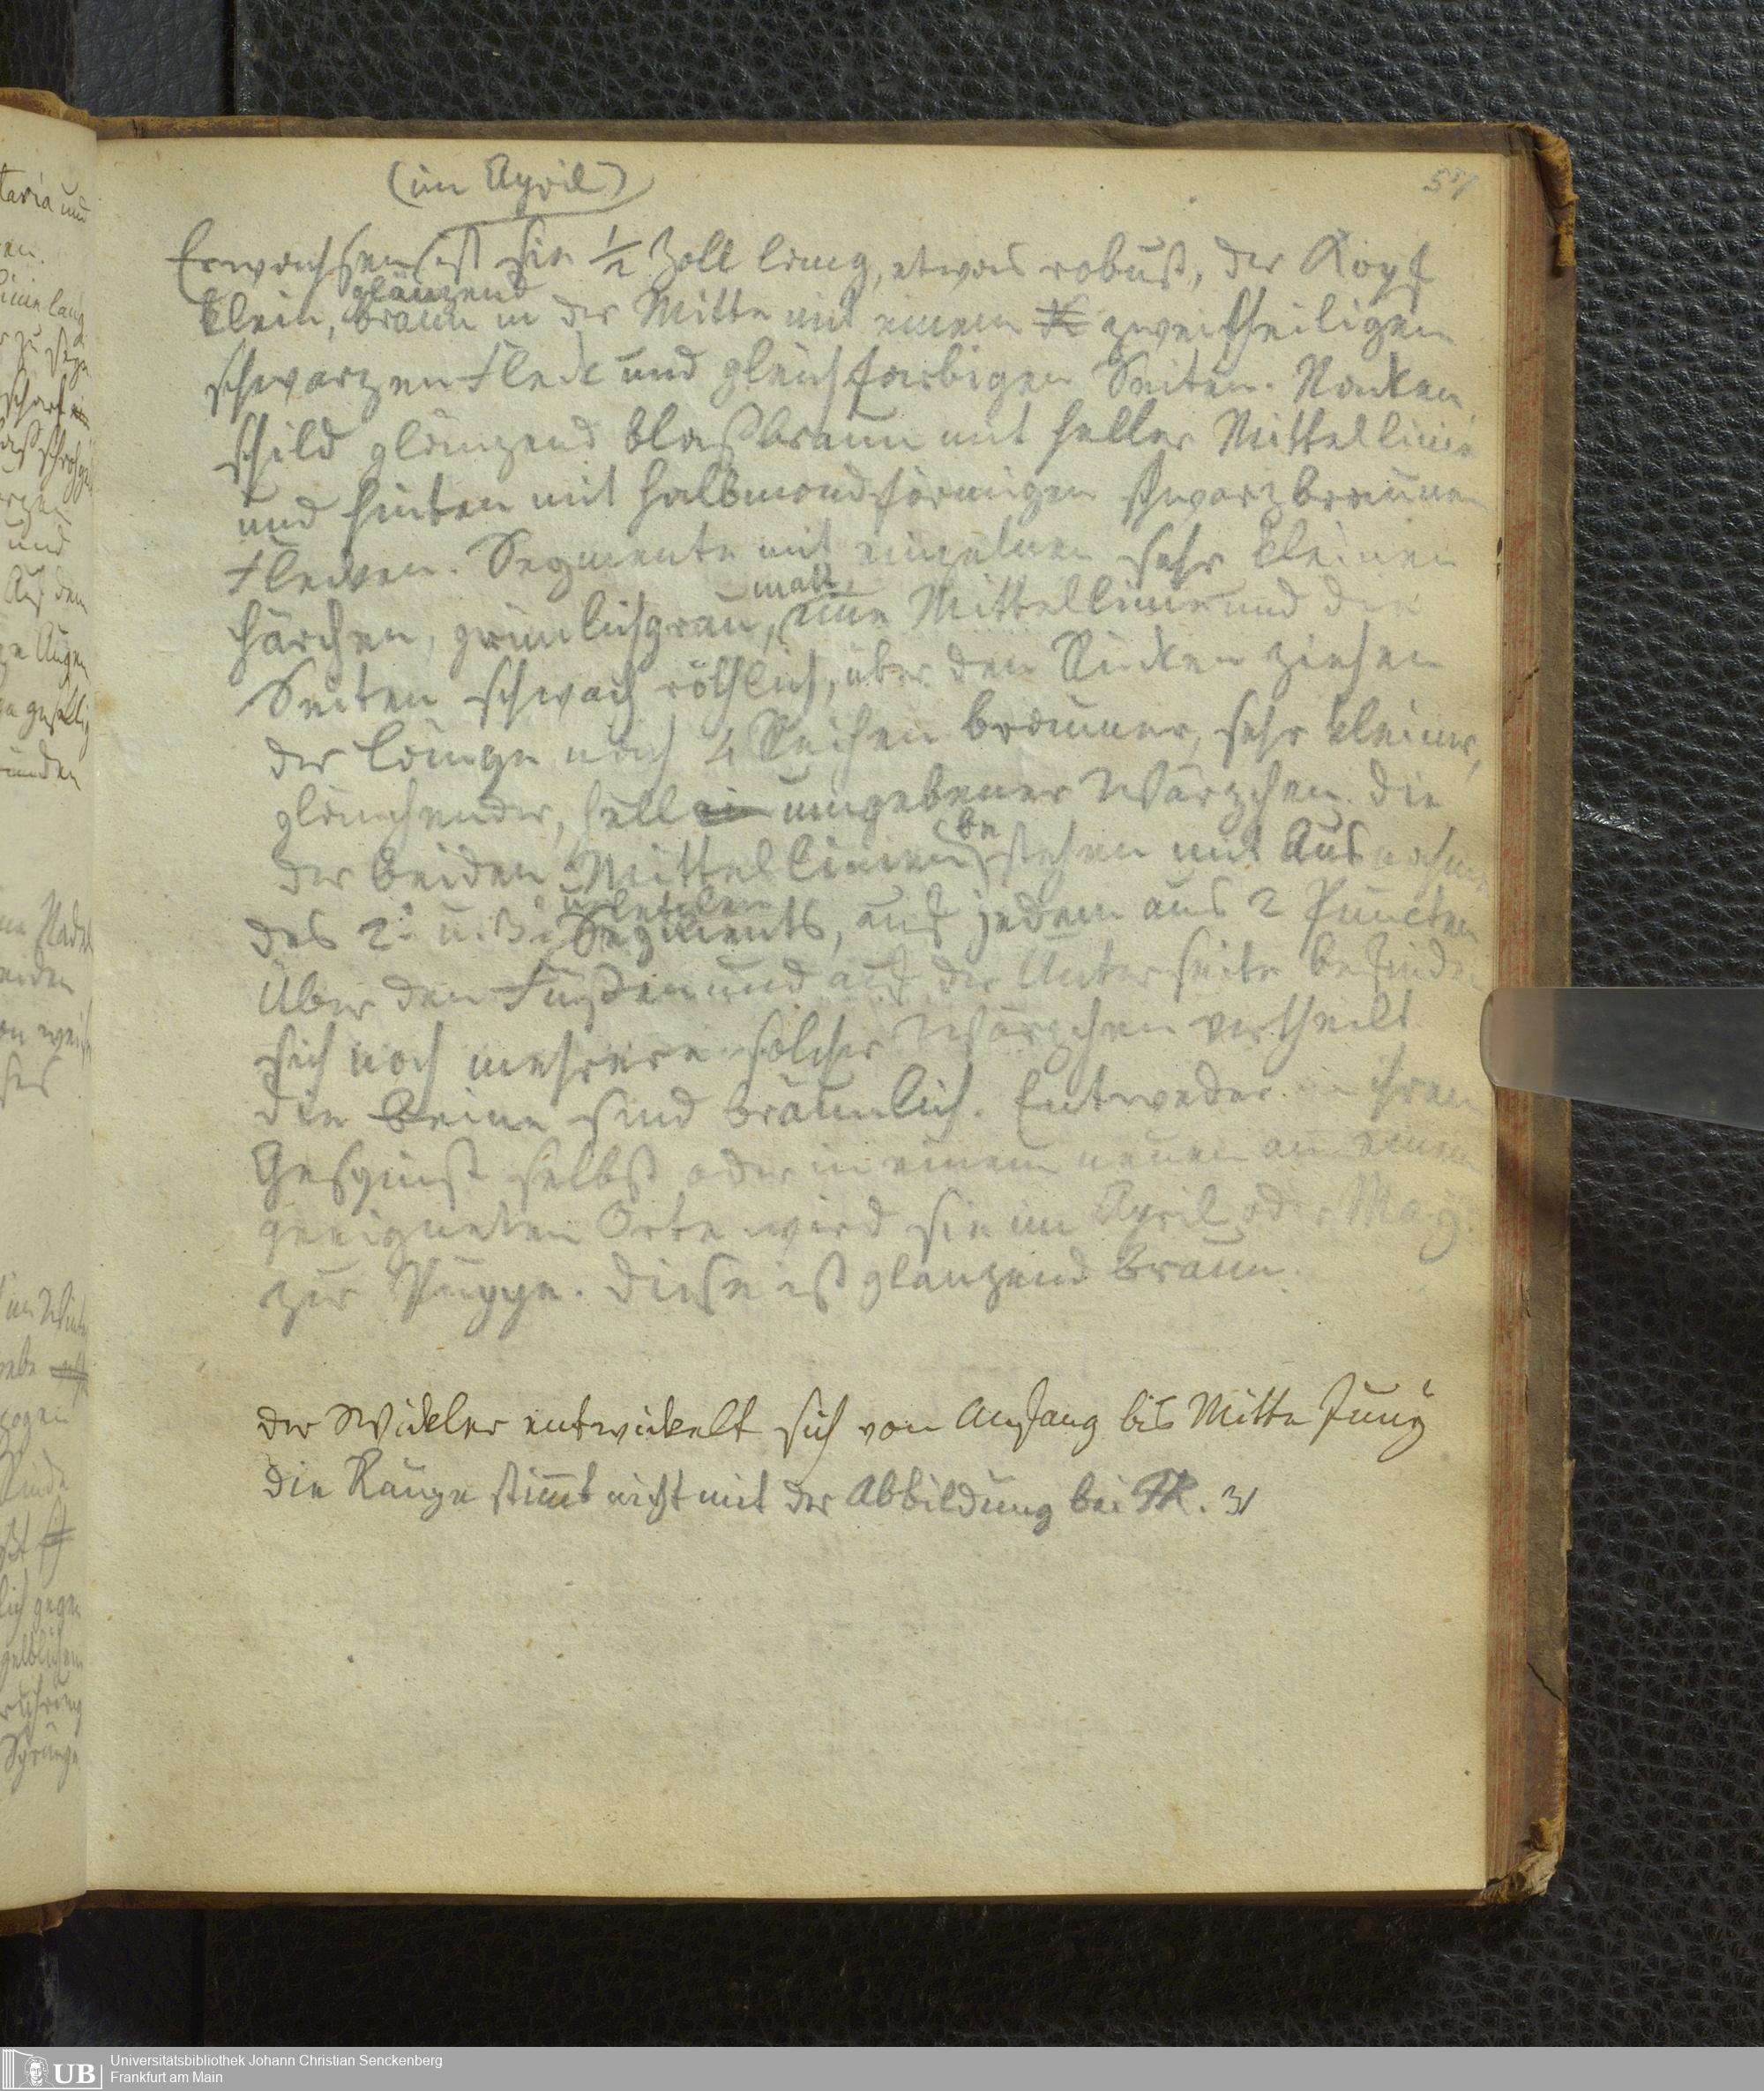 (im April)
57
Erwachsen ist sie 1/2 Zoll lang, etwas robust, der Kopf
glänzend
klein, braun in der Mitte mit einem zweitheiligen
schwarzen Fleck und gleichfarbigen Seiten. Nacken
schild glänzend blaßbraun mit heller Mittellinie
und hinten mit halbmondförmigen schwarzbraunen
Flecken. Segmente mit einzelnen sehr kleinen
matt
härchen, grünlichgrau, eine Mittellinie und die
Seiten schwach röthlich, über den Rücken ziehen
der Länge nach 4 Reihen brauner, sehr kleiner,
glänzender, hell umgebener Wärzchen. die
be
der beiden Mittellinien stehen mit Ausnahme
u letzten
des 2. u. 3. Segments, auf jedem aus 2 Puncten
Über den Füßen und auf der Unterseite befinden
sich noch mehrere solcher Wärzchen vertheilt
die Beine sind bräunlich. Entweder in ihrem
Gespinst selbst oder in einem neuen an einem
geeigneten Orte wird sie im April oder May
zur Puppe. Diese ist glänzend braun.
der Wickler entwickelt sich von Anfang bis Mitte Juny
die Raupe stimt nicht mit der Abbildung bei FR.
taria und
und
Auf dem
Augen
Universitätsbibliothek Johann Christian Senckenberg
Frankfurt am Main
UB